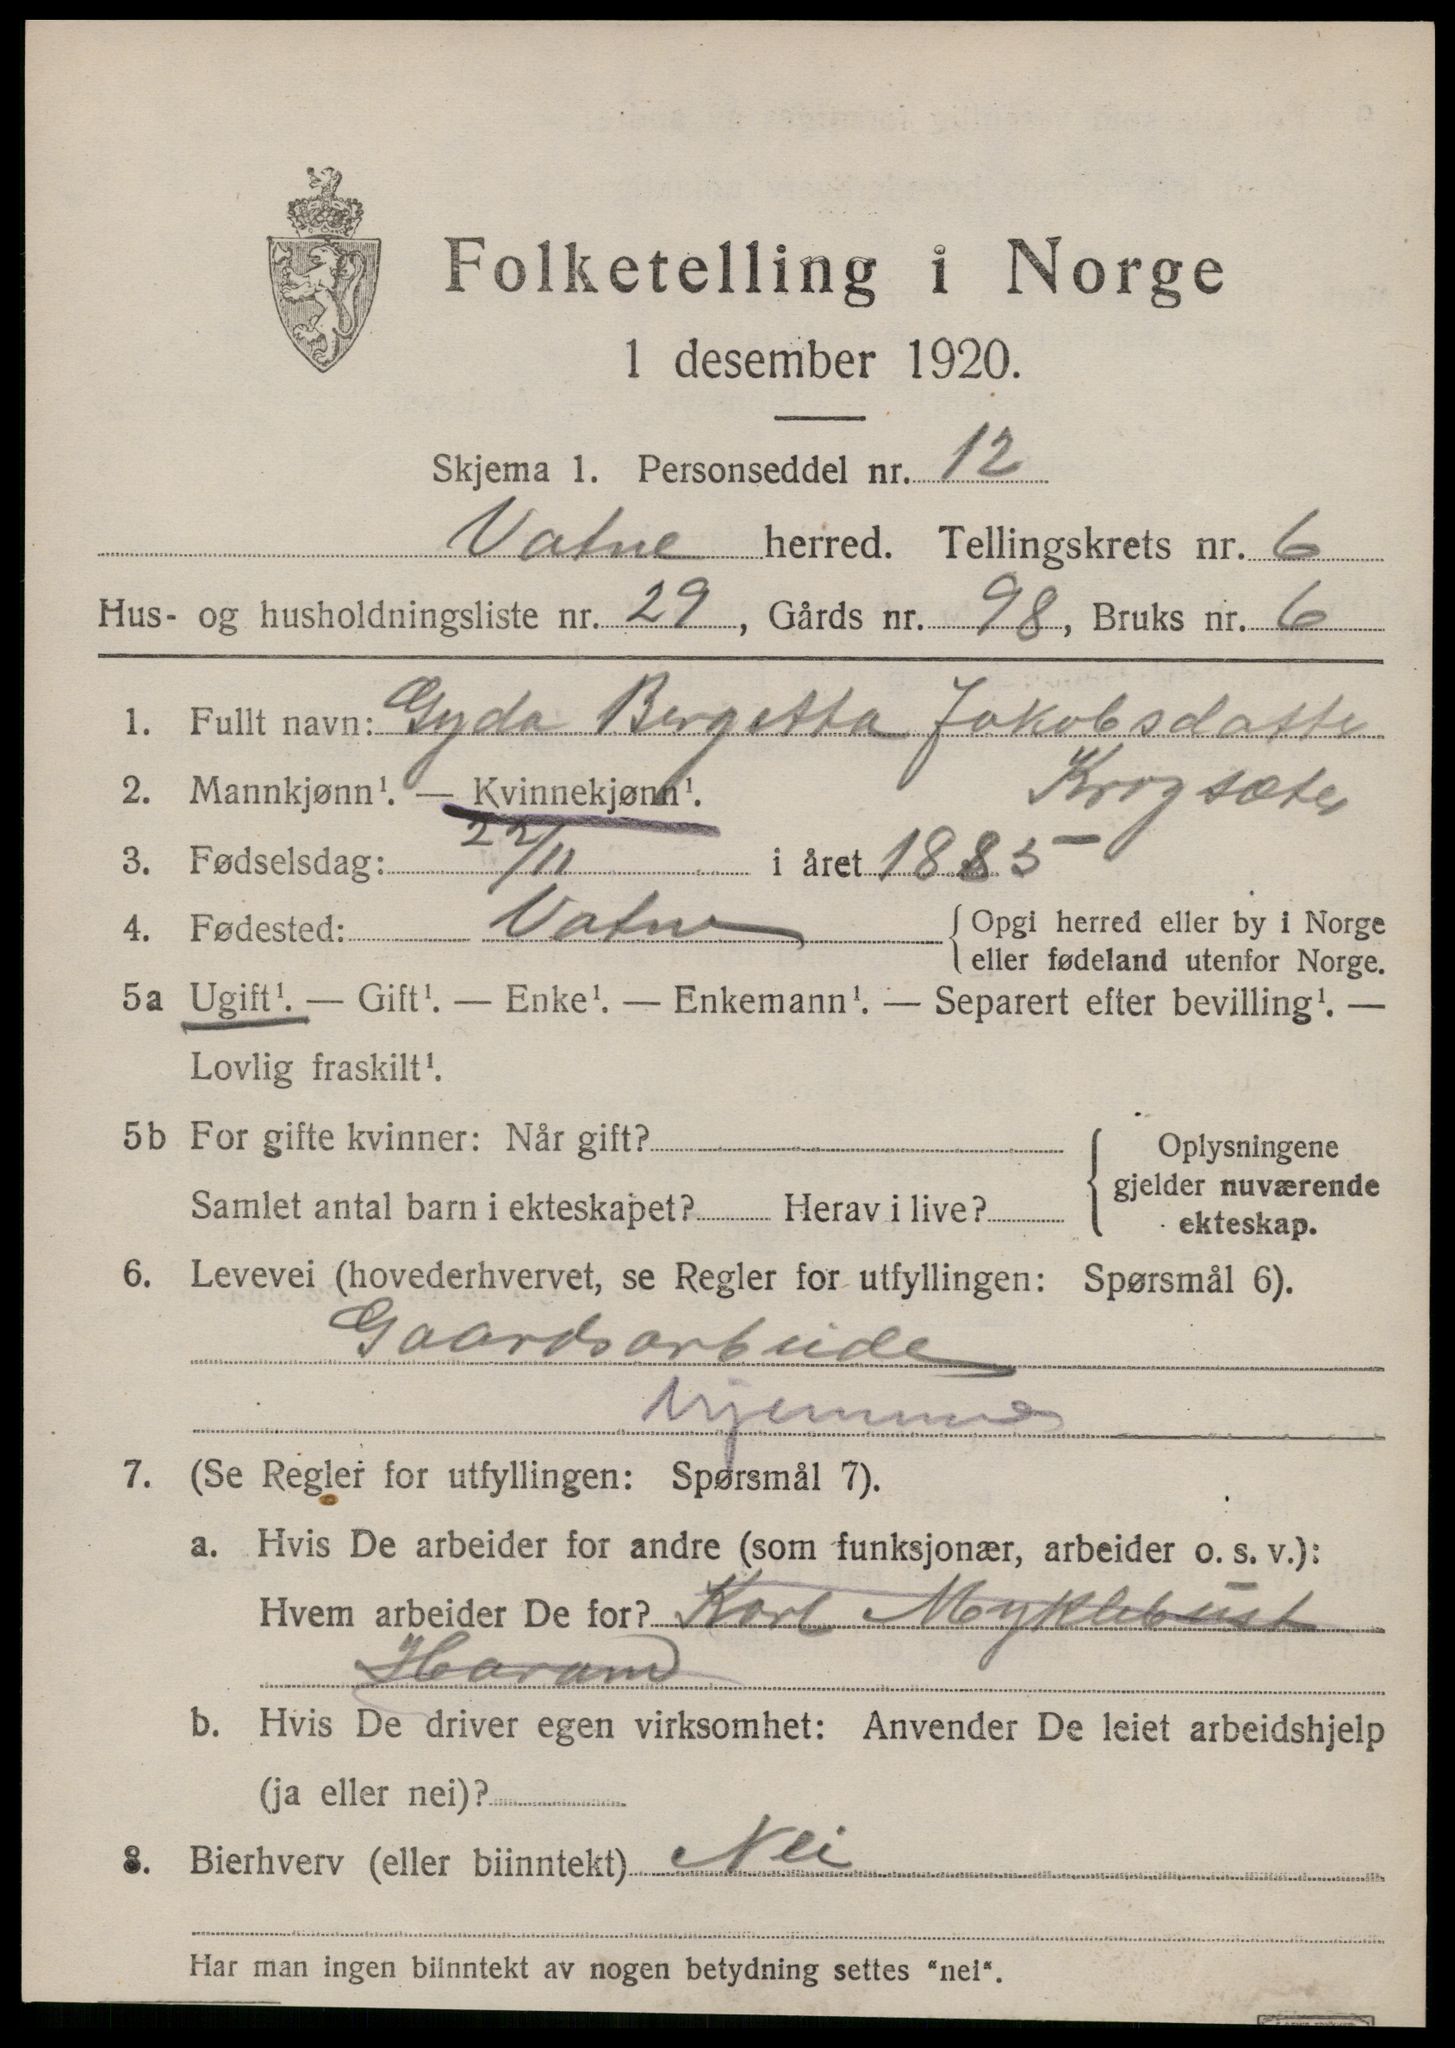 Folketelling i Norge
1 desember 1920.
Skjema 1. Personseddel nr. 12
Vatne herred. Tellingskrets nr. 6
Hus- og husholdningsliste nr. 29, Gårds nr. 98, Bruks nr. 6
1. Fullt navn: Gyda Bergetta Jakobsdatte
Krogsæter
2. Mannkjønn¹. — Kvinnekjønn¹.
3. Fødselsdag: 22/11 i året 1885
4. Fødested: Vatne { Opgi herred eller by i Norge
eller fødeland utenfor Norge.
5a Ugift¹. — Gift¹. — Enke¹. — Enkemann¹. — Separert efter bevilling¹. —
Lovlig fraskilt¹.
5b For gifte kvinner: Når gift? { Oplysningene
gjelder nuværende
ekteskap.
Samlet antal barn i ekteskapet? Herav i live?
6. Levevei (hovederhvervet, se Regler for utfyllingen: Spørsmål 6).
Gaardsarbeide
hjemme
7. (Se Regler for utfyllingen: Spørsmål 7).
a. Hvis De arbeider for andre (som funksjonær, arbeider o. s. v.):
Hvem arbeider De for? Karl Myklebust
Haram
b. Hvis De driver egen virksomhet: Anvender De leiet arbeidshjelp
(ja eller nei)?
8. Bierhverv (eller biinntekt) Nei
Har man ingen biinntekt av nogen betydning settes “nei“.